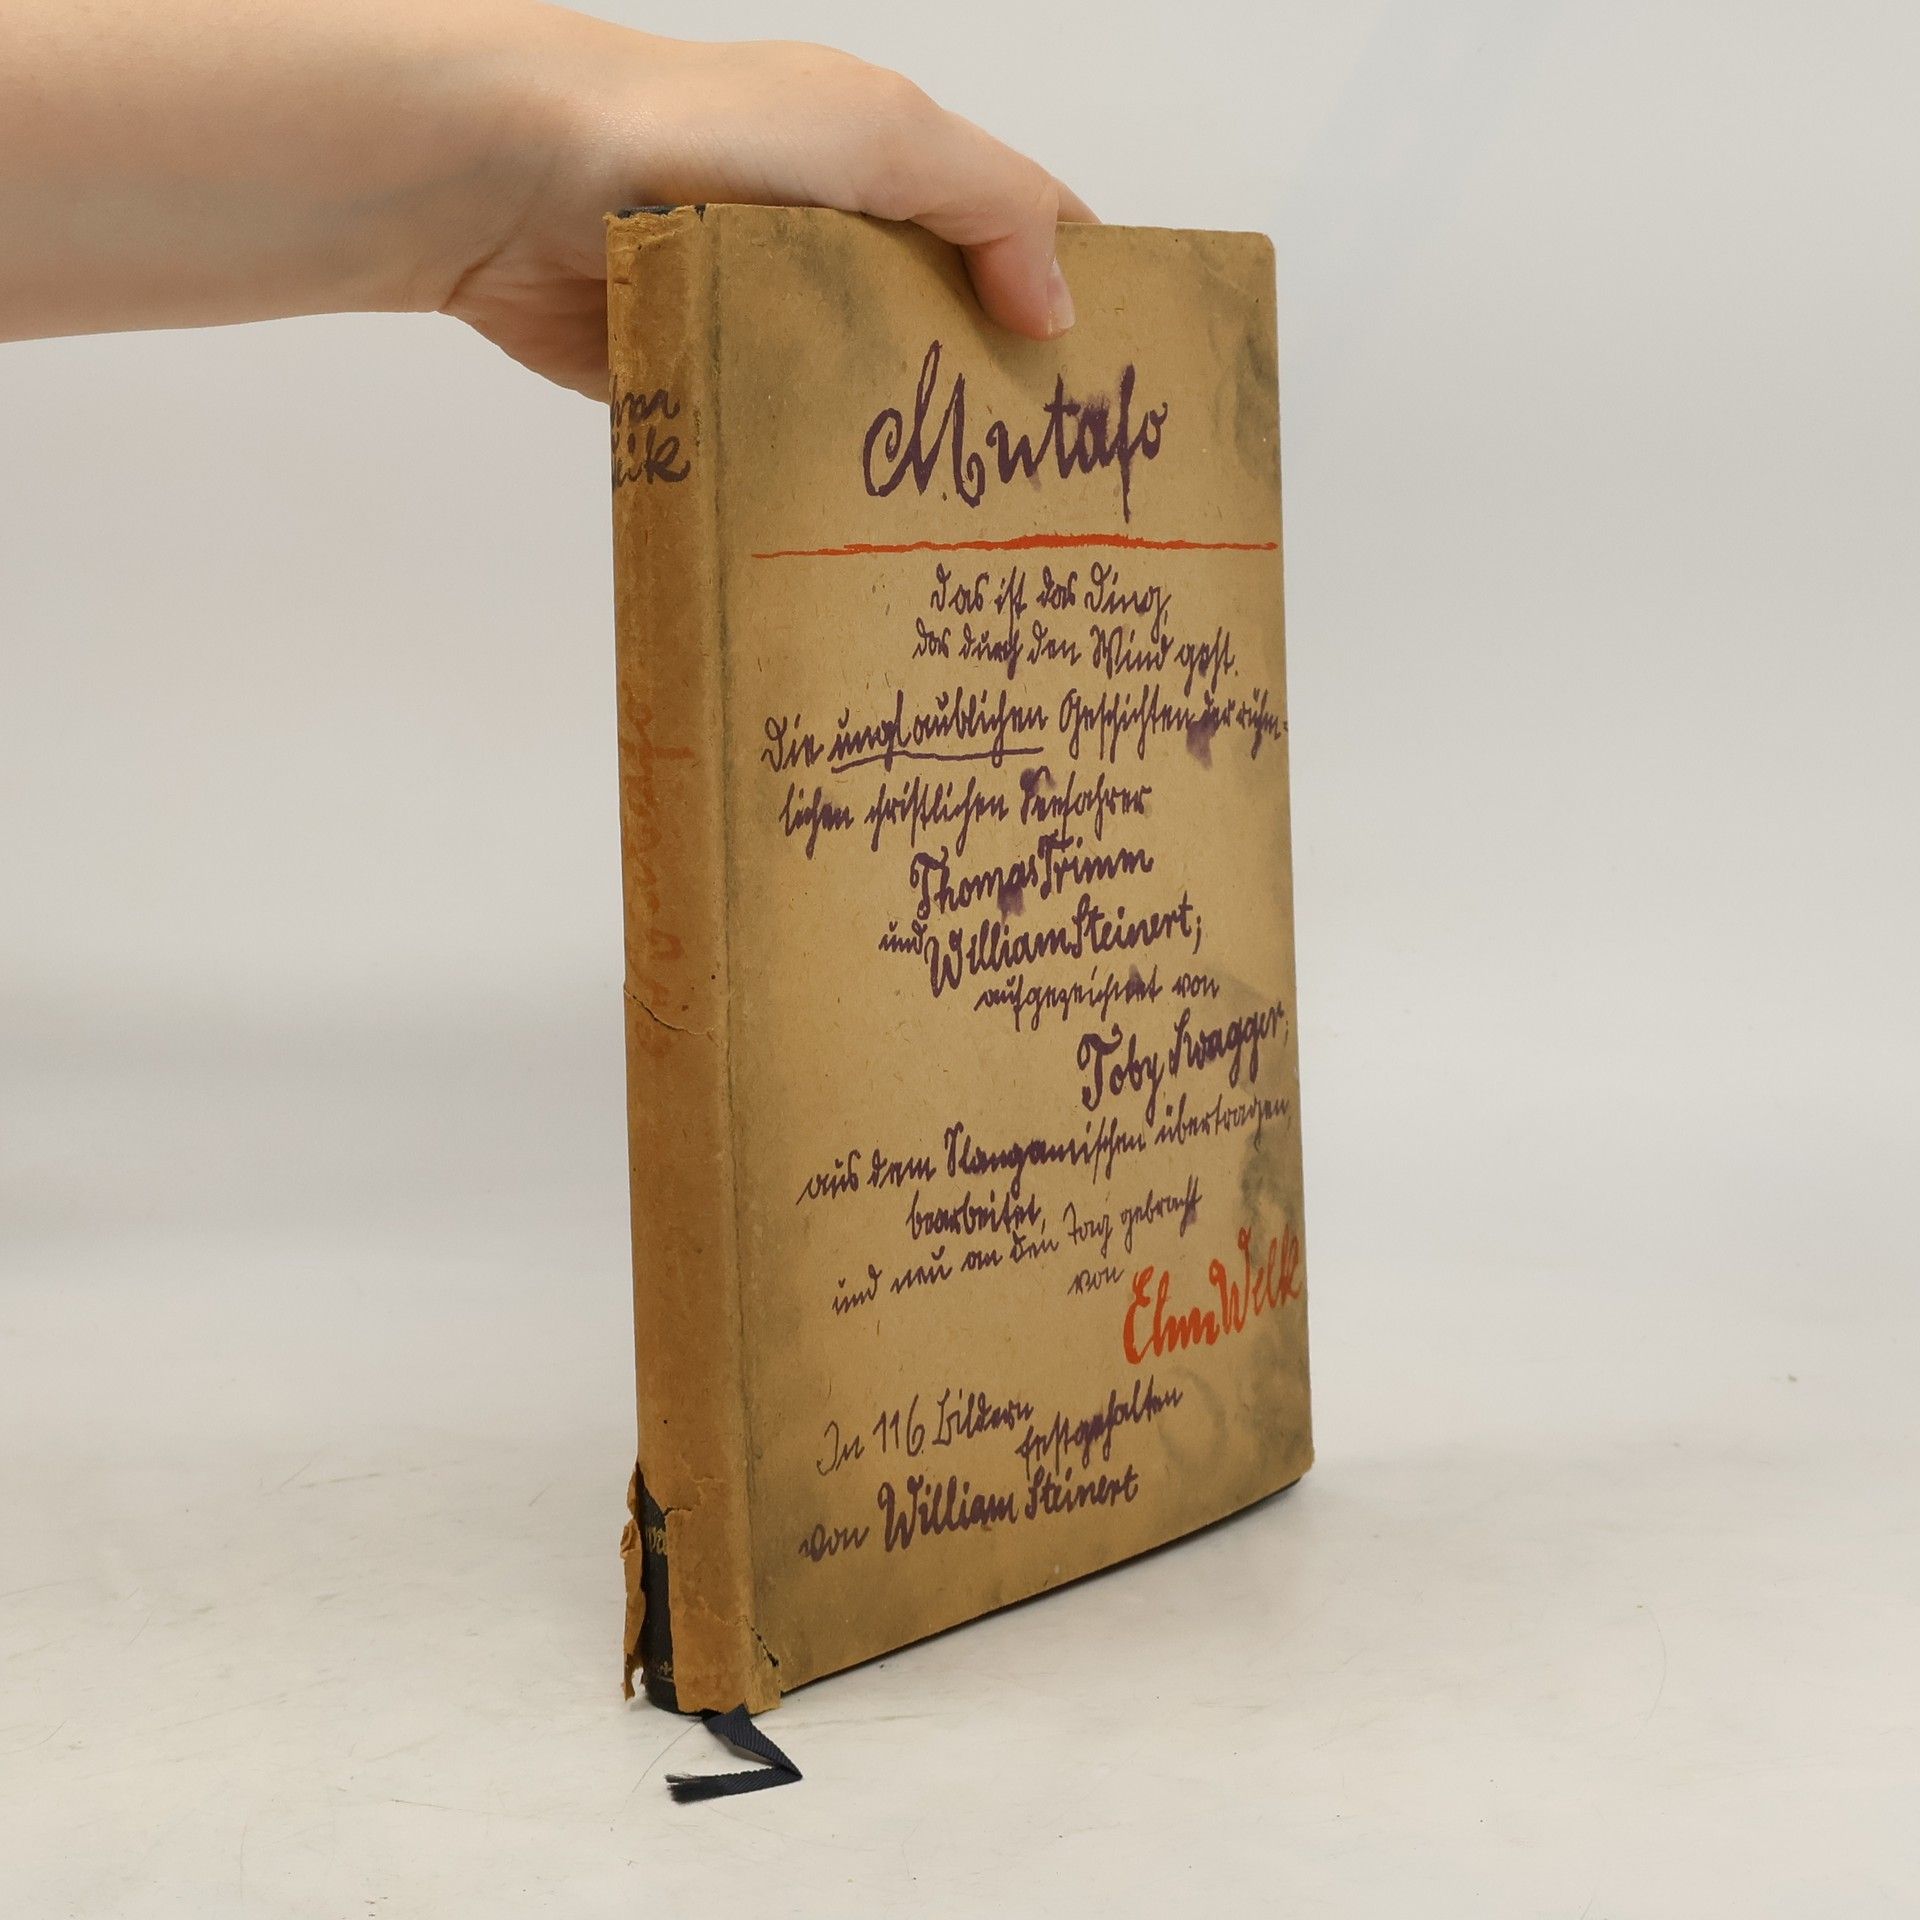 Mutafo
Das ist das Ding,
das durch den Wind geht.
Die unglaublichen Geschichten der rühm-
lichen christlichen Seefahrer
Thomas Trimm
und William Steinert;
aufgezeichnet von
Toby Kwagger;
aus dem Slangamischen übertragen,
bearbeitet,
und neu an den Tag gebracht
von Ehm Welk
In 116 Bildern
festgehalten
von William Steinert
Mutafo